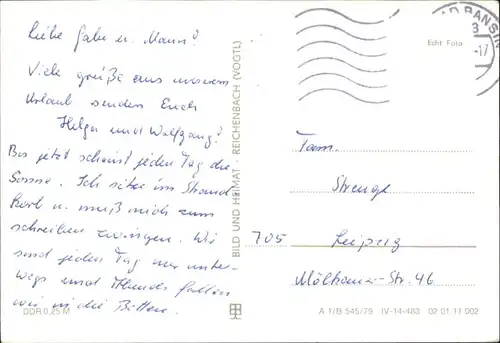 Liebe Gabi u. Mann!
Viele Grüße aus unserem
Urlaub senden Euch
Helga und Wolfgang!
Bis jetzt scheint jeden Tag die
Sonne. Ich sitze im Strand
korb u. muß mich zum
schreiben zwingen. Wir
sind jeden Tag nur unter-
wegs und Abends fallen
wir in die Betten.
DDR 0,25 M
BILD UND HEIMAT · REICHENBACH (VOGTL)
BANSIN
-17
Echt Foto
Fam.
Strenge
705 Leipzig
Str. 46
A 1/B 545/79 IV-14-483 02 01 11 002